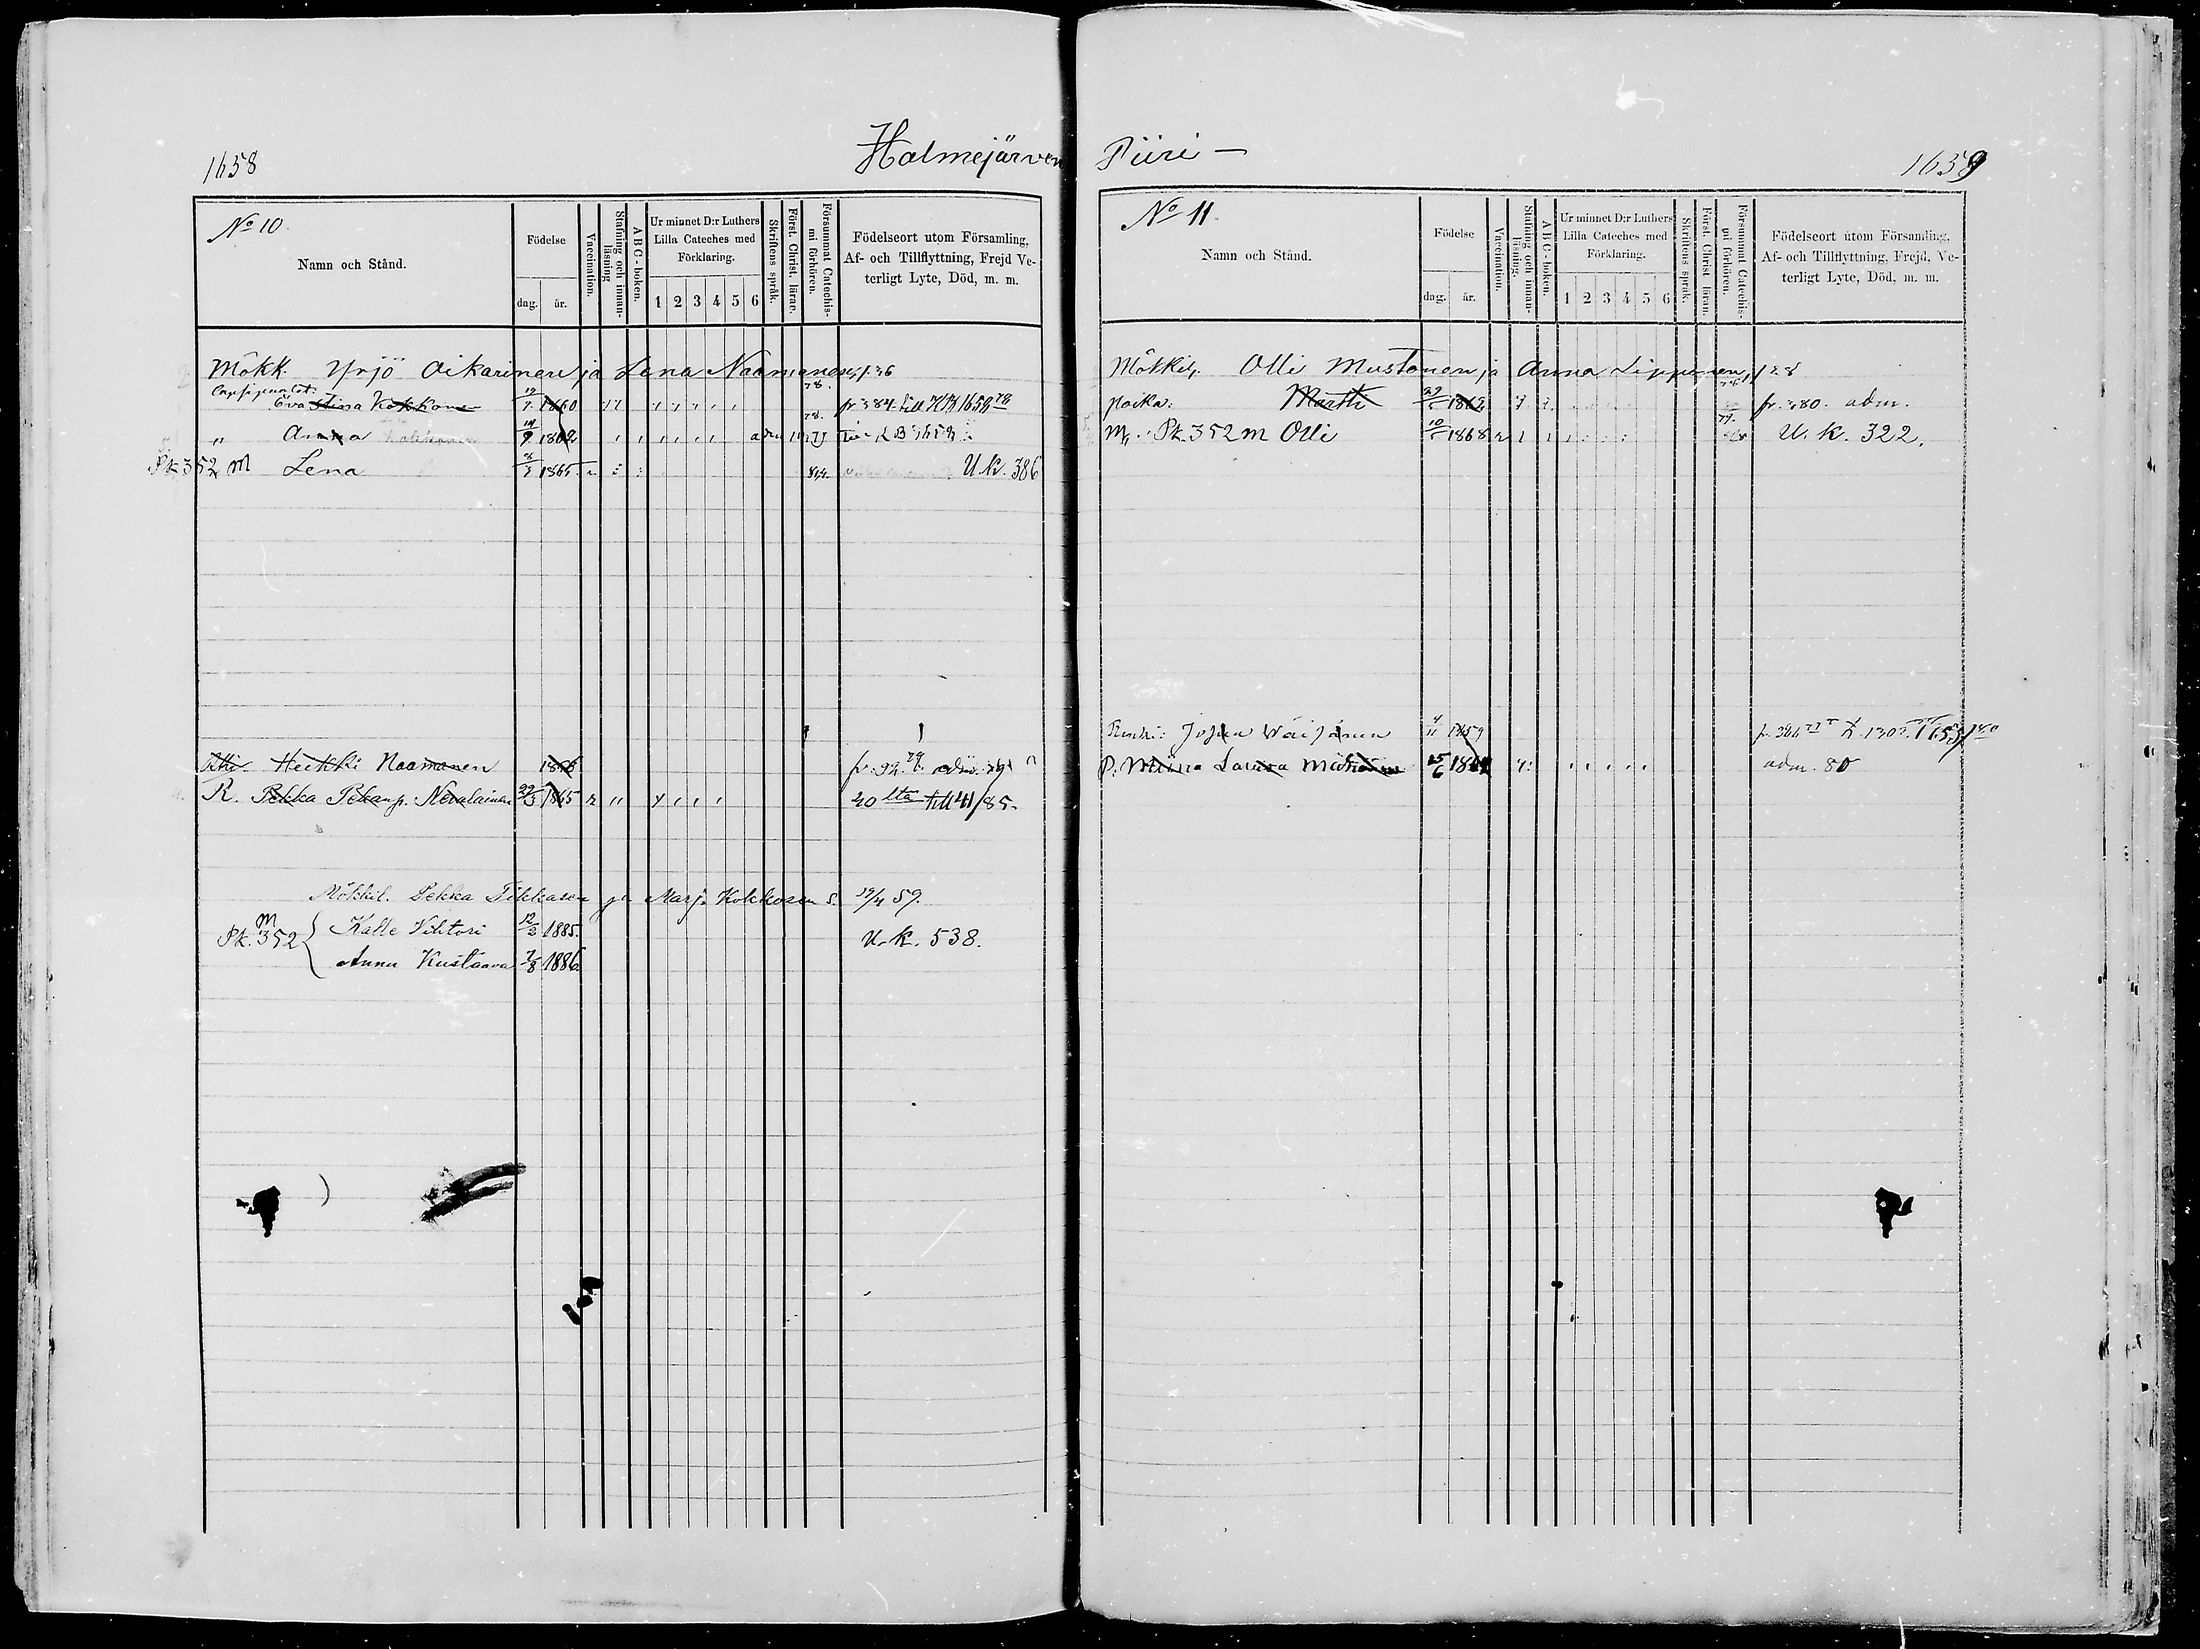 1658
Halmejärven Piiri —
1659
No 10.
Namn och Stånd.
Födelse
dag. år.
Vaccination.
Stafning och innan-läsning
A B C - boken.
Ur minnet D:r Luthers Lilla Cateches med Förklaring.
1 2 3 4 5 6
Skriftens språk.
Först. Christ. läran.
Försummat Catechis-mi förhören.
Födelseort utom Församling, Af- och Tillflyttning, Frejd Ve-terligt Lyte, Död, m. m.
Mökk. Yrjö Oikarinen ja Lena Naamanen, f. 36
Eva Stina Kokkonen 1860 78. fr 384 till KB 1658 78
" Anna Kokkonen 1862 adm
Pk. 352 m Lena 1865 U. k. 386
Heikki Naamanen 1856 fr. 92. adm.
R. Pekka Pekanp. Nevalainen 29/3 1865 20 lta till 41/85.
Mökkil. Pekka Tikkasen ja Marj. Kokkosen s. 19/4 59.
Pk. m 352 { Kalle Vihtori 12/2 1885. U. k. 538.
Anna Kustaava 7/8 1886
No 11.
Namn och Stånd.
Födelse
dag. år.
Vaccination.
Stafning och innan-läsning.
A B C - boken.
Ur minnet D:r Luthers Lilla Cateches med Förklaring.
1 2 3 4 5 6
Skriftens språk.
Först. Christ läran.
Försummat Catechis-mi förhören.
Födelseort utom Församling, Af- och Tillflyttning, Frejd, Ve-terligt Lyte, Död, m. m.
Mökkil. Olli Mustonen ja Anna Lipponen, f 28
poika: Martti 1862 fr. 380. adm.
M. Pk. 352 m Olli 1868 U. k. 322.
Renki: Johan Väisänen 4/11 1859
P. Miina Lauisa 25/6 adm. 80